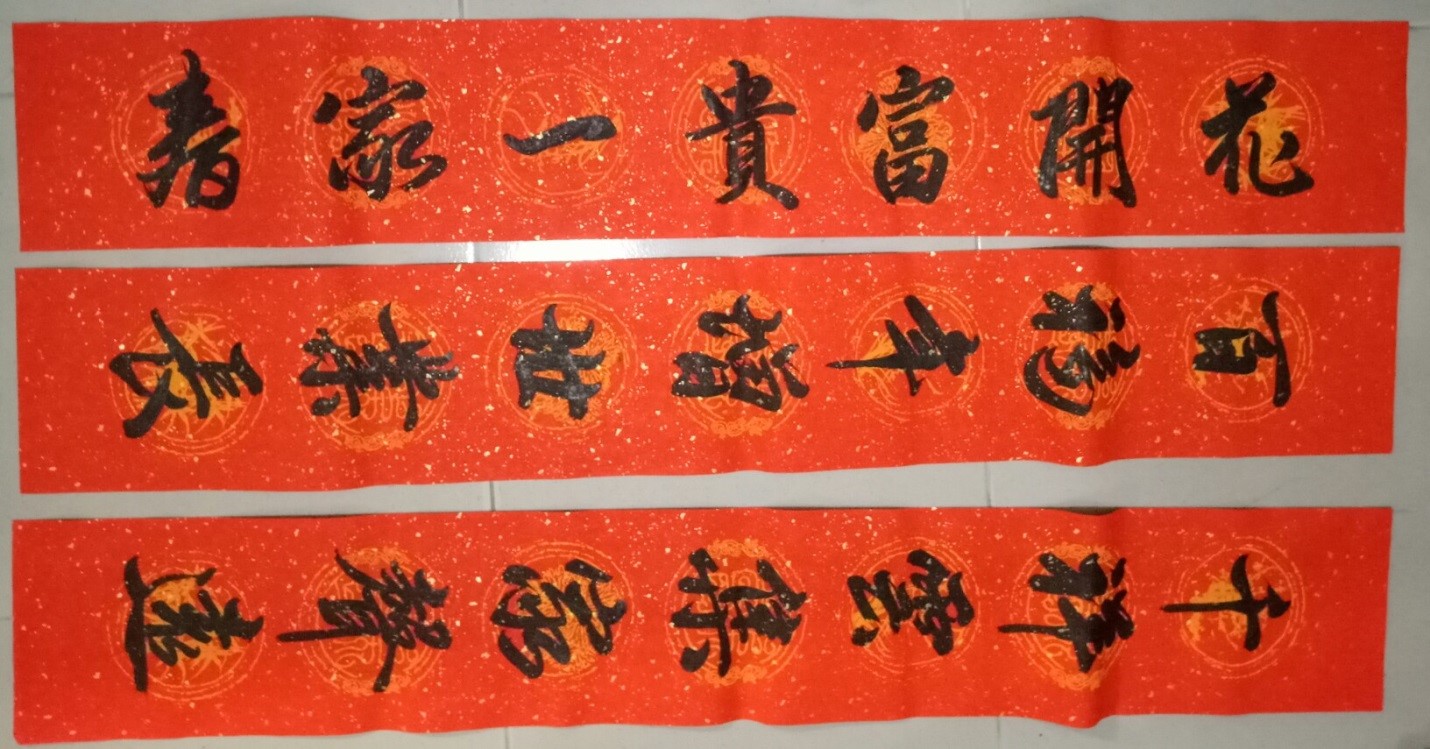 花開富貴一家春
百福年增世業長
千祥雲集家聲遠